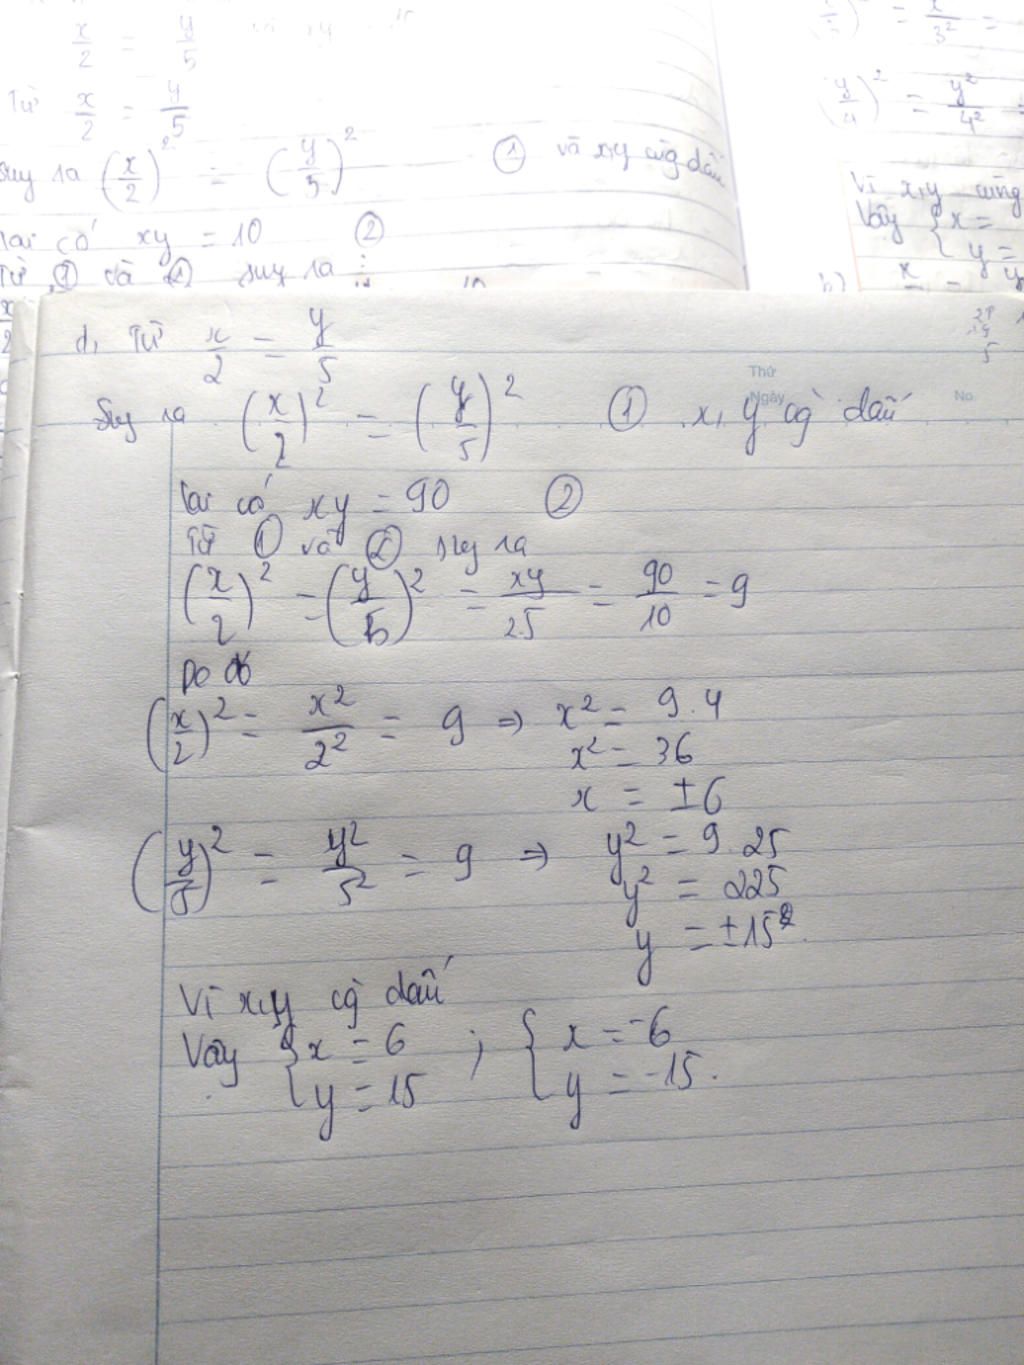 x/2 = y/5
Từ x/2 = y/5
Suy ra (x/2)² = (y/5)² ① và x,y cùg dấu
lại có xy = 10 ②
Từ ① và ② suy ra
(y/4)² = y²/4²
Vì x,y cùng
Vậy { x =
y =
b)
d, Từ x/2 = y/5
Thứ
Ngày
No.
Suy ra (x/2)² = (y/5)² ① x, y cg̀ dấu
lại có xy = 90 ②
Từ ① và ② suy ra
(x/2)² = (y/5)² = xy/2.5 = 90/10 = 9
Do đó
(x/2)² = x²/2² = 9 => x² = 9.4
x² = 36
x = ±6
(y/5)² = y²/5² = 9 => y² = 9.25
y² = 225
y = ±15
Vì x,y cg̀ dấu
Vậy { x = 6 ; { x = -6
y = 15 y = -15.